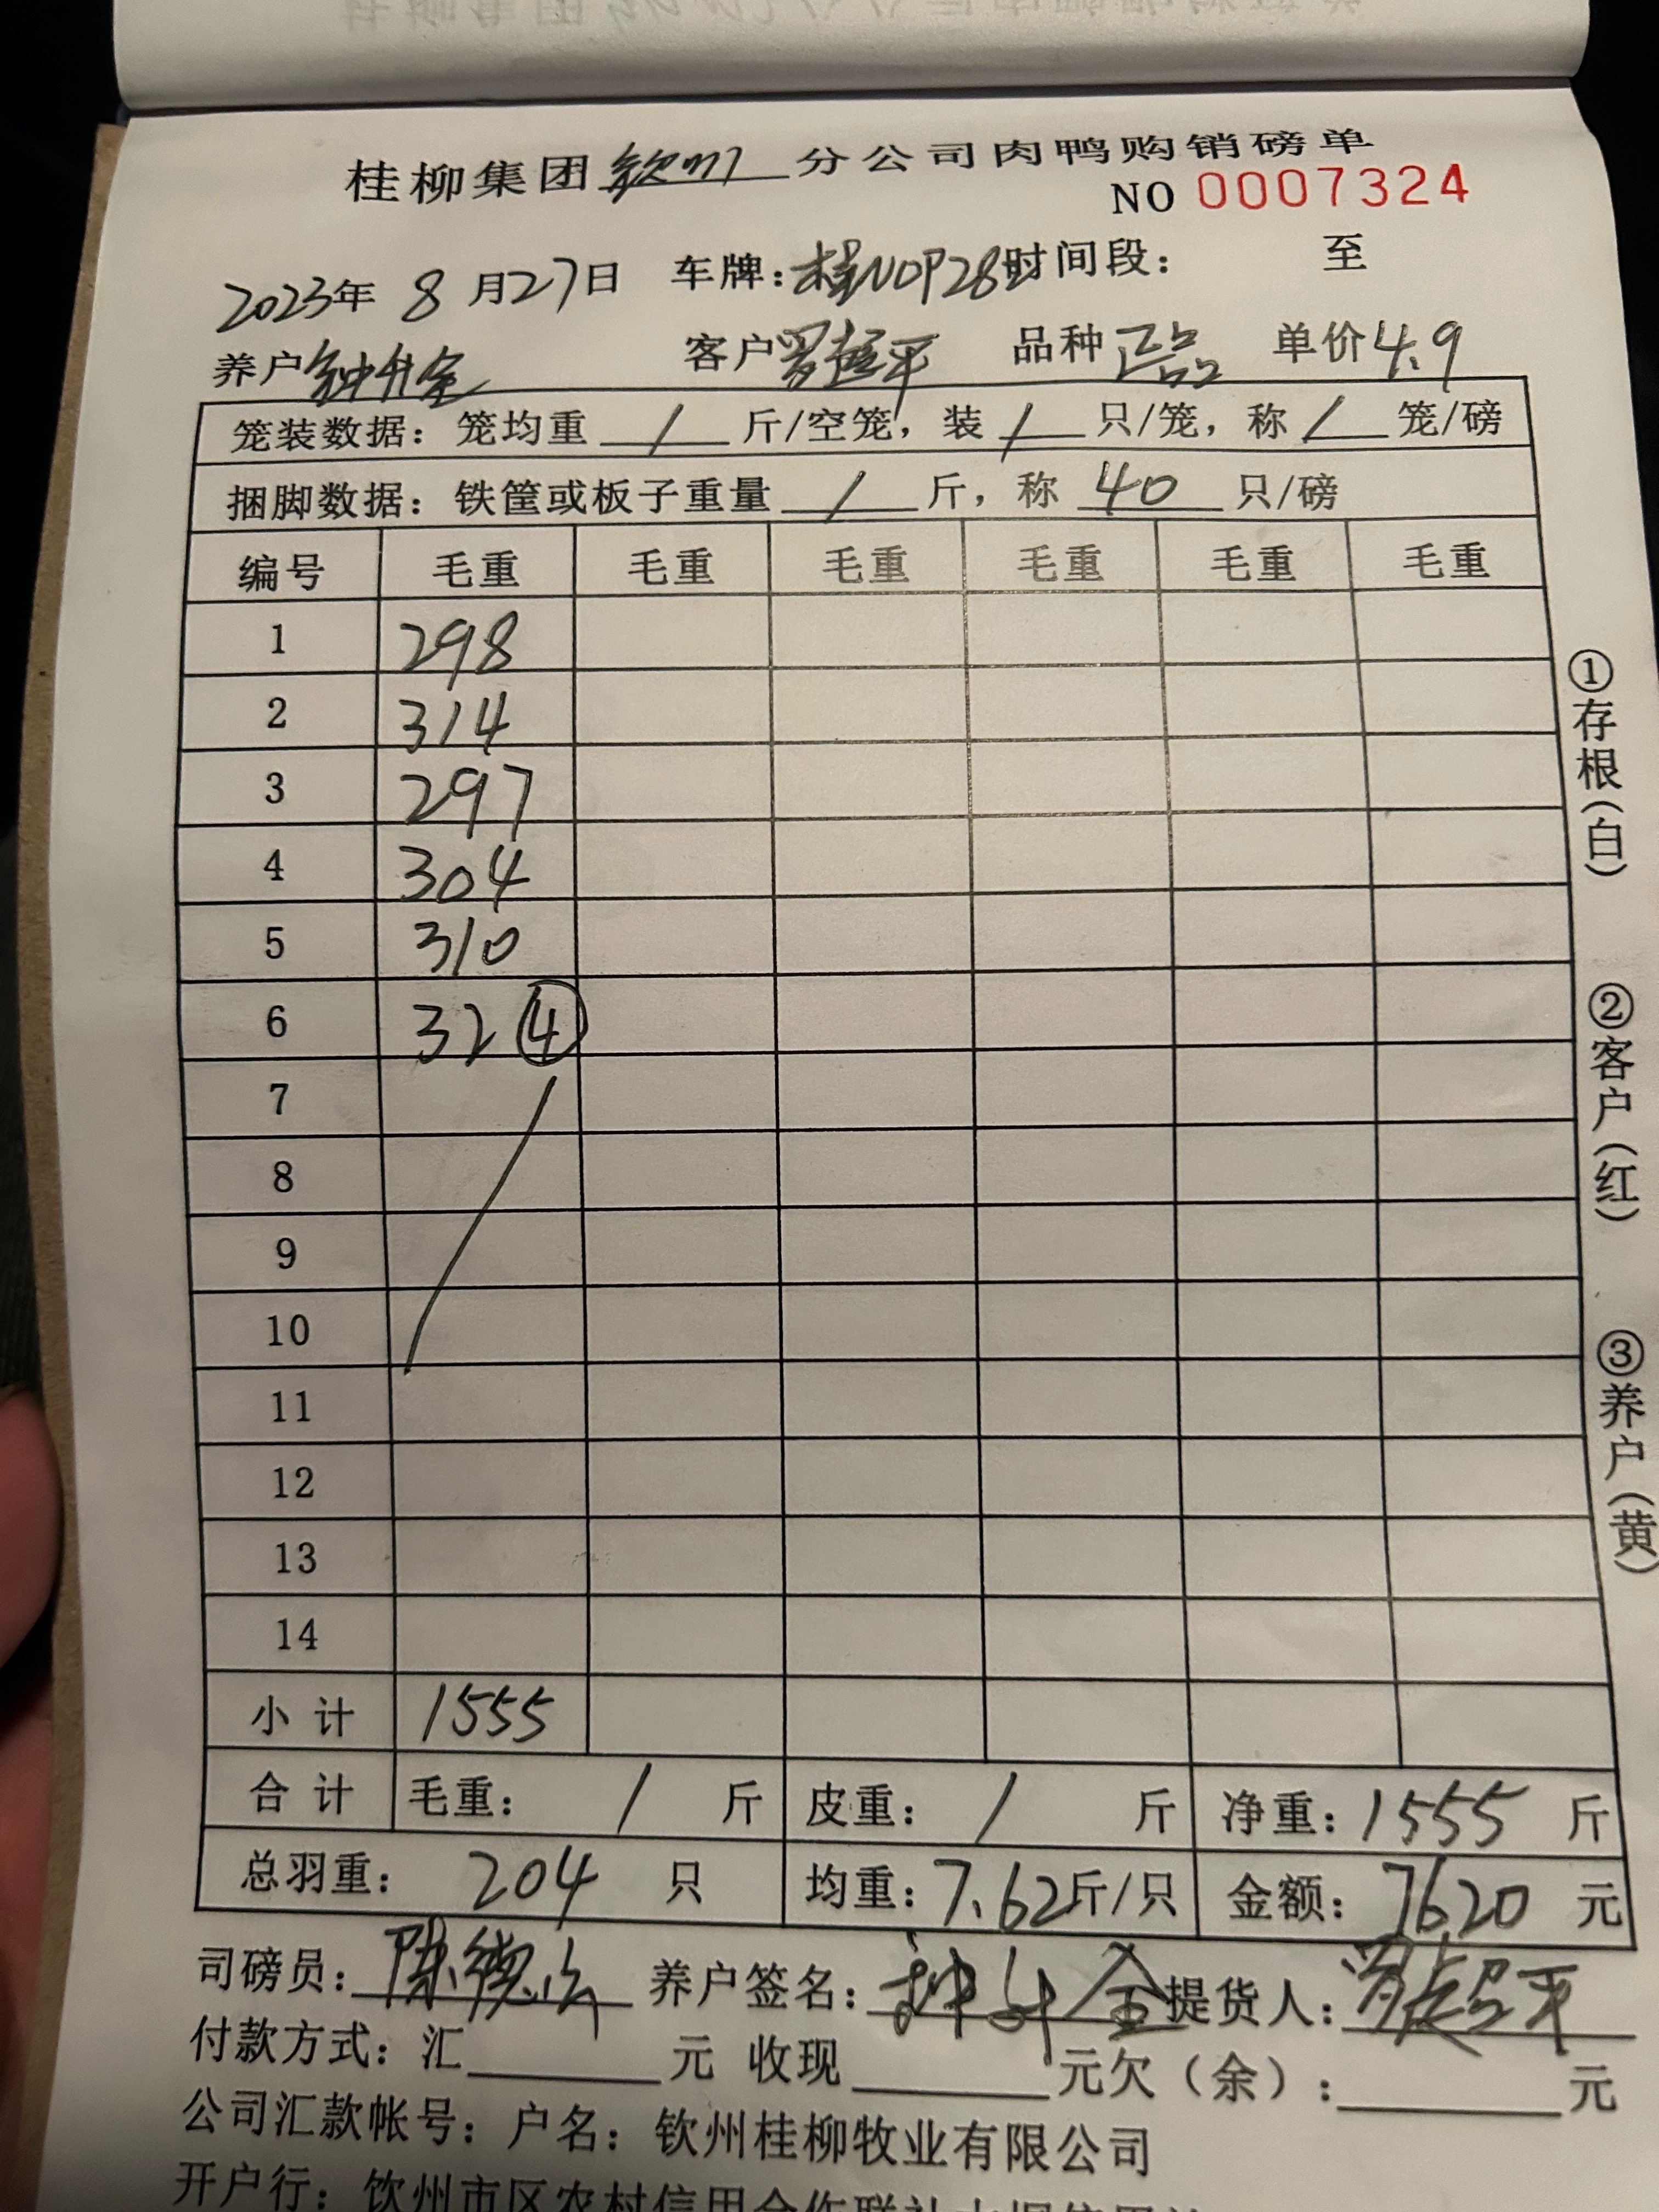 桂柳集团钦州分公司肉鸭购销磅单
NO 0007324
2023年 8月27日 车牌:桂NDP28 时间段: 至
养户 钟升全 客户 罗超平 品种 正品 单价4.9
笼装数据: 笼均重 / 斤/空笼, 装 / 只/笼, 称 / 笼/磅
捆脚数据: 铁筐或板子重量 / 斤, 称 40 只/磅
编号 毛重 毛重 毛重 毛重 毛重 毛重
1 298
2 314
3 297
4 304
5 310
6 32 ④
7
8
9
10
11
12
13
14
小计 1555
合计 毛重: / 斤 皮重: / 斤 净重: 1555 斤
总羽重: 204 只 均重: 7.62斤/只 金额: 7620 元
司磅员: 陈德 养户签名: 钟升全 提货人: 罗超平
付款方式: 汇 元 收现 元欠(余): 元
公司汇款帐号: 户名: 钦州桂柳牧业有限公司
开户行: 钦州市区农村信用合作联社
①存根(白)
②客户(红)
③养户(黄)